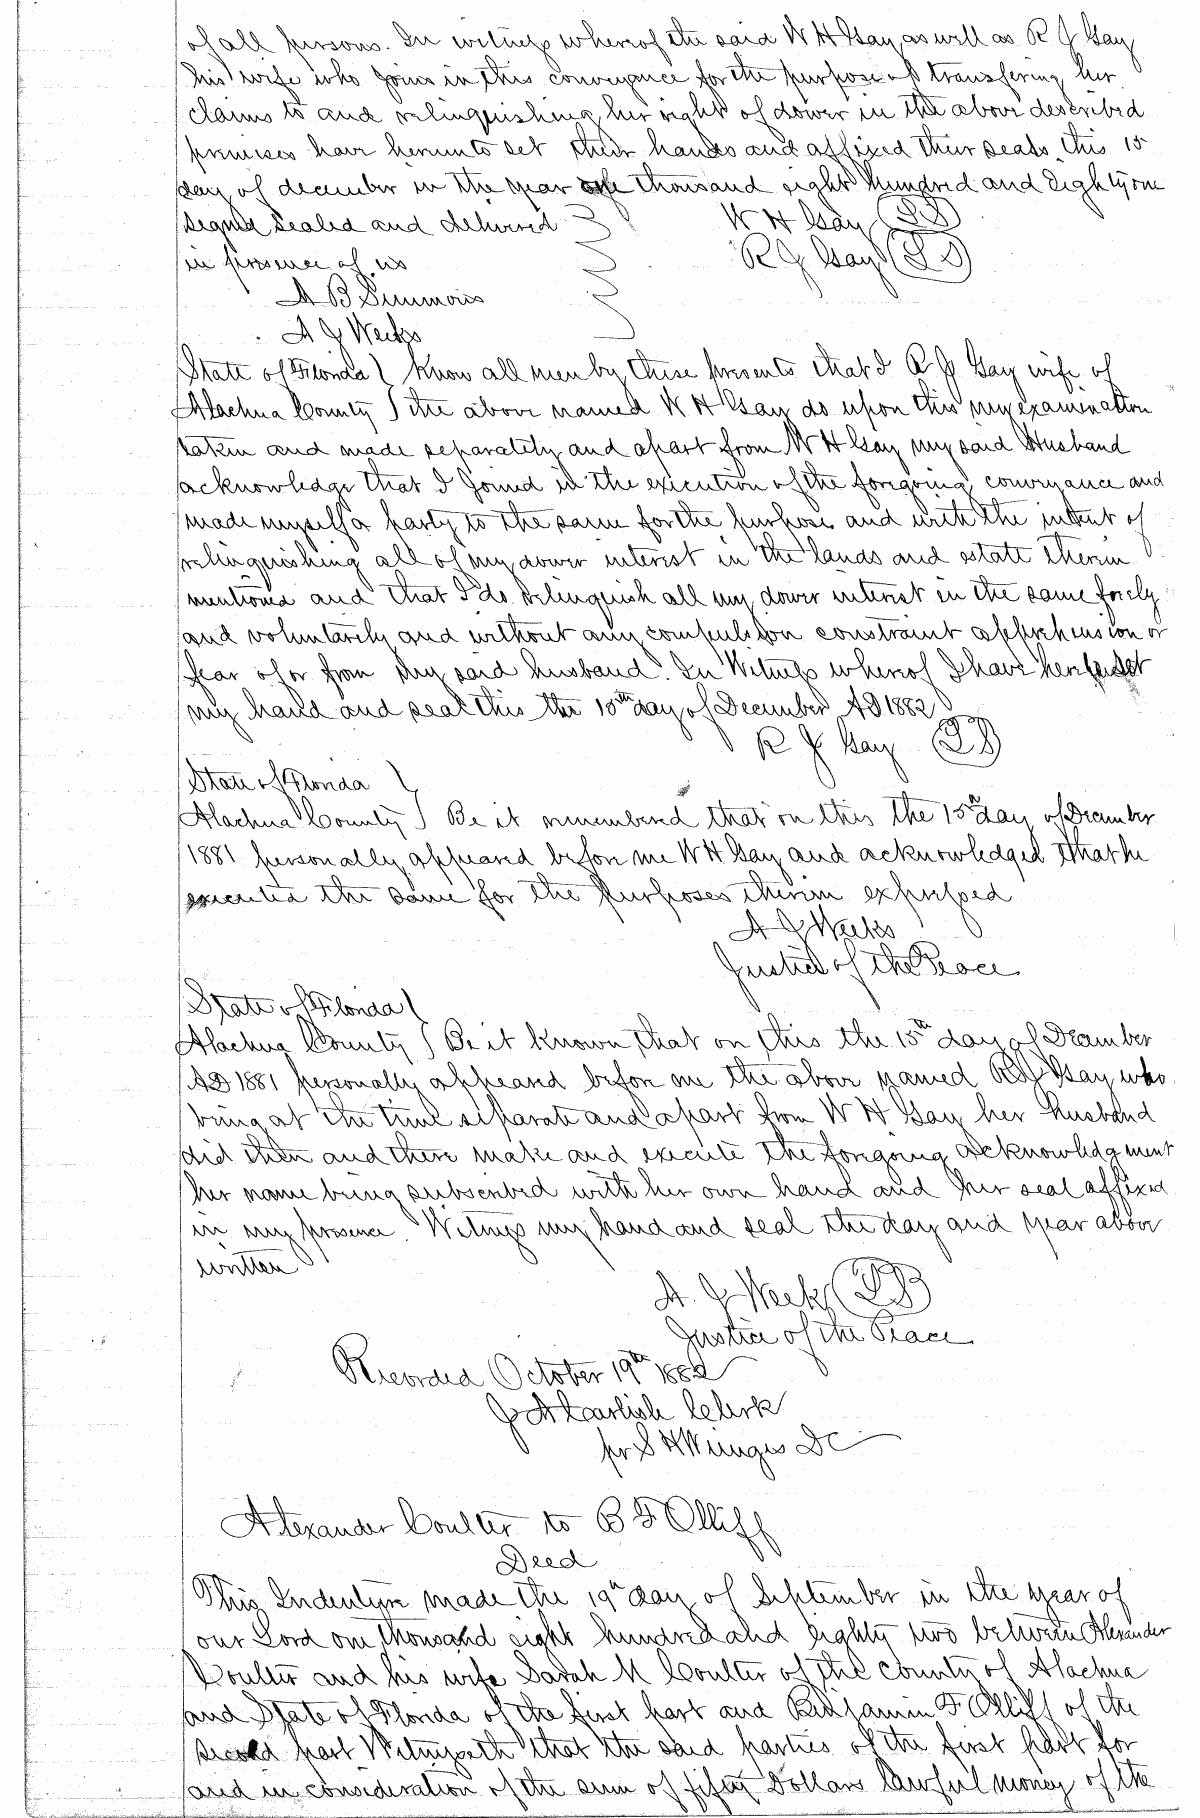 of all persons. In witness whereof the said W H Gay as well as R J Gay
his wife who joins in this conveyance for the purpose of transfering her
claims to and relinquishing her right of dower in the above described
premises have herunto set their hands and affixed their seals this 15
day of december in the year one thousand eight hundred and Eighty one
signed sealed and delivered W H Gay (LS)
in presence of us R J Gay (LS)
A B Simmons
A J Weeks
State of Florida } Know all men by these presents that I R J Gay wife of
Alachua County } the above named W H Gay do upon this my examination
taken and made separately and apart from W H Gay my said Husband
acknowledge that I joined in the execution of the foregoing conveyance and
made myself a party to the same for the purpose and with the intent of
relinquishing all of my dower interest in the lands and estate therein
mentioned and that I do relinquish all my dower interest in the same freely
and voluntarily and without any compulsion constraint apprehension or
fear of or from my said husband. In Witness whereof I have set
my hand and seal this the 15th day of December AD 1882
R J Gay (LS)
State of Florida }
Alachua County } Be it remembered that on this the 15th day of December
1881 personally appeared before me W H Gay and acknowledged that he
executed the same for the purposes therein expressed
A J Weeks
Justice of the Peace
State of Florida }
Alachua County } Be it known that on this the 15th day of December
AD 1881 personally appeared before me the above named R J Gay who
being at the time separate and apart from W H Gay her husband
did then and there make and execute the foregoing acknowledgment
her name being subscribed with her own hand and her seal affixed
in my presence. Witness my hand and seal the day and year above
written
A. J Weeks (LS)
Justice of the Peace
Recorded October 19th 1882
J A Carlisle Clerk
pr S H DC
Alexander Coulter to B F Olliff
Deed
This Indenture made the 19th day of September in the year of
our Lord one thousand eight hundred and eighty two between Alexander
Coulter and his wife Sarah M Coulter of the county of Alachua
and State of Florida of the first part and Benjamin F Olliff of the
second part Witnesseth that the said parties of the first part for
and in consideration of the sum of fifty Dollars lawful money of the